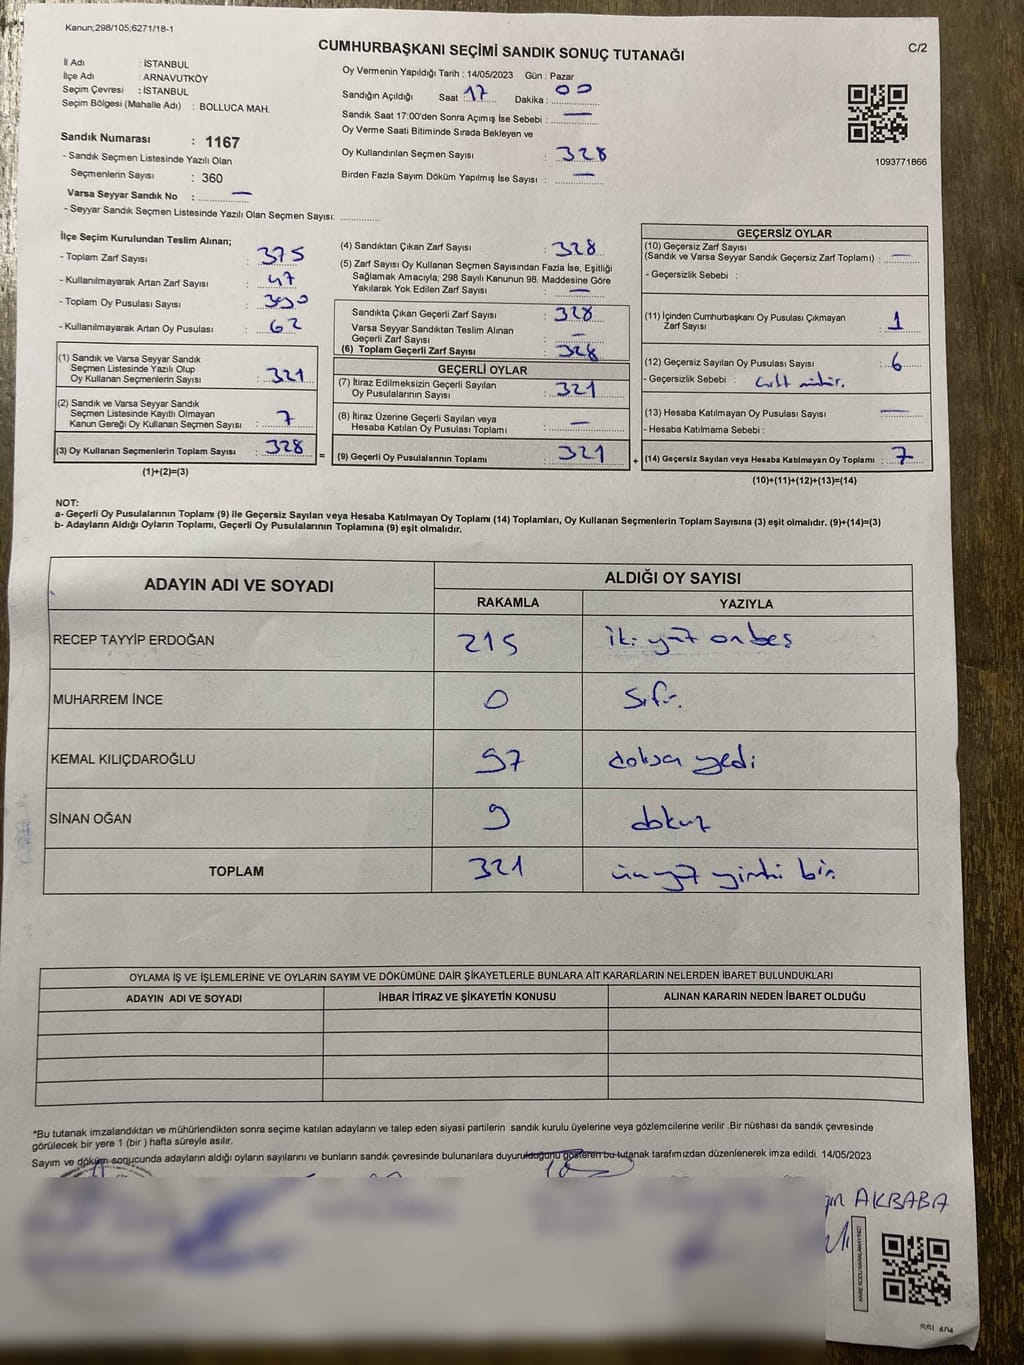 Kanun;298/105;6271/18-1
CUMHURBAŞKANI SEÇİMİ SANDIK SONUÇ TUTANAĞI
C/2
İl Adı : İSTANBUL
İlçe Adı : ARNAVUTKÖY
Seçim Çevresi : İSTANBUL
Seçim Bölgesi (Mahalle Adı) : BOLLUCA MAH.
Sandık Numarası : 1167
- Sandık Seçmen Listesinde Yazılı Olan
Seçmenlerin Sayısı : 360
Varsa Seyyar Sandık No : —
- Seyyar Sandık Seçmen Listesinde Yazılı Olan Seçmen Sayısı:
Oy Vermenin Yapıldığı Tarih : 14/05/2023 Gün : Pazar
Sandığın Açıldığı Saat : 17 Dakika : 00
Sandık Saat 17:00'den Sonra Açımış İse Sebebi : —
Oy Verme Saati Bitiminde Sırada Bekleyen ve
Oy Kullandırılan Seçmen Sayısı : 328
Birden Fazla Sayım Döküm Yapılmış İse Sayısı : —
1093771866
İlçe Seçim Kurulundan Teslim Alınan;
- Toplam Zarf Sayısı : 375
- Kullanılmayarak Artan Zarf Sayısı : 47
- Toplam Oy Pusulası Sayısı : 390
- Kullanılmayarak Artan Oy Pusulası : 62
(1) Sandık ve Varsa Seyyar Sandık
Seçmen Listesinde Yazılı Olup
Oy Kullanan Seçmenlerin Sayısı : 321
(2) Sandık ve Varsa Seyyar Sandık
Seçmen Listesinde Kayıtlı Olmayan
Kanun Gereği Oy Kullanan Seçmen Sayısı : 7
(3) Oy Kullanan Seçmenlerin Toplam Sayısı : 328
(1)+(2)=(3)
(4) Sandıktan Çıkan Zarf Sayısı : 328
(5) Zarf Sayısı Oy Kullanan Seçmen Sayısından Fazla İse, Eşitliği
Sağlamak Amacıyla; 298 Sayılı Kanunun 98. Maddesine Göre
Yakılarak Yok Edilen Zarf Sayısı : —
Sandıkta Çıkan Geçerli Zarf Sayısı : 328
Varsa Seyyar Sandıktan Teslim Alınan
Geçerli Zarf Sayısı : —
(6) Toplam Geçerli Zarf Sayısı : 328
GEÇERLİ OYLAR
(7) İtiraz Edilmeksizin Geçerli Sayılan
Oy Pusulalarının Sayısı : 321
(8) İtiraz Üzerine Geçerli Sayılan veya
Hesaba Katılan Oy Pusulası Toplamı : —
= (9) Geçerli Oy Pusulalarının Toplamı : 321
GEÇERSİZ OYLAR
(10) Geçersiz Zarf Sayısı
(Sandık ve Varsa Seyyar Sandık Geçersiz Zarf Toplamı) : —
- Geçersizlik Sebebi :
(11) İçinden Cumhurbaşkanı Oy Pusulası Çıkmayan
Zarf Sayısı : 1
(12) Geçersiz Sayılan Oy Pusulası Sayısı : 6
- Geçersizlik Sebebi : çift mühür.
(13) Hesaba Katılmayan Oy Pusulası Sayısı : —
- Hesaba Katılmama Sebebi :
+ (14) Geçersiz Sayılan veya Hesaba Katılmayan Oy Toplamı : 7
(10)+(11)+(12)+(13)=(14)
NOT:
a- Geçerli Oy Pusulalarının Toplam (9) ile Geçersiz Sayılan veya Hesaba Katılmayan Oy Toplamı (14) Toplamları, Oy Kullanan Seçmenlerin Toplam Sayısına (3) eşit olmalıdır. (9)+(14)=(3)
b- Adayların Aldığı Oyların Toplamı, Geçerli Oy Pusulalarının Toplamına (9) eşit olmalıdır.
ADAYIN ADI VE SOYADI ALDIĞI OY SAYISI
RAKAMLA YAZIYLA
RECEP TAYYİP ERDOĞAN 215 iki yüz onbeş
MUHARREM İNCE 0 Sıfır.
KEMAL KILIÇDAROĞLU 97 doksan yedi
SİNAN OĞAN 9 dokuz
TOPLAM 321 üç yüz yirmi bir.
OYLAMA İŞ VE İŞLEMLERİNE VE OYLARIN SAYIM VE DÖKÜMÜNE DAİR ŞİKAYETLERLE BUNLARA AİT KARARLARIN NELERDEN İBARET BULUNDUKLARI
ADAYIN ADI VE SOYADI İHBAR İTİRAZ VE ŞİKAYETİN KONUSU ALINAN KARARIN NEDEN İBARET OLDUĞU
*Bu tutanak imzalandıktan ve mühürlendikten sonra seçime katılan adayların ve talep eden siyasi partilerin sandık kurulu üyelerine veya gözlemcilerine verilir .Bir nüshası da sandık çevresinde
görülecek bir yere 1 (bir ) hafta süreyle asılır.
Sayım ve döküm sonucunda adayların aldığı oyların sayılarını ve bunların sandık çevresinde bulunanlara duyurulduğunu gösteren bu tutanak tarafımızdan düzenlenerek imza edildi. 14/05/2023
AKBABA
KARE KODU KARALAMAYINIZ!